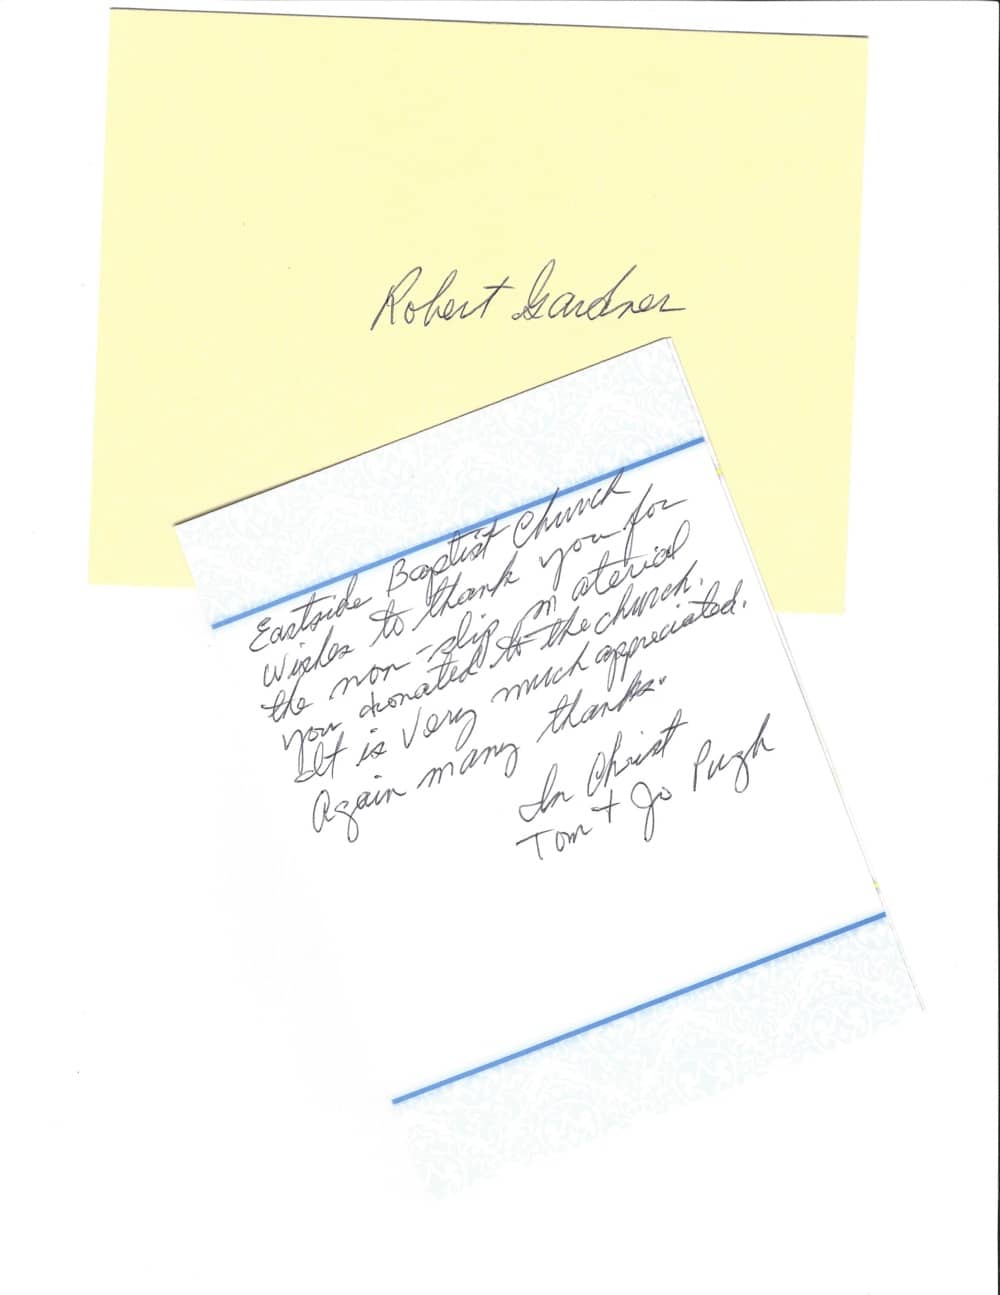 Robert Gardner
Eastside Baptist Church
Wishes to thank you for
the non-slip material
you donated to the church.
It is very much appreciated.
Again many thanks.
In Christ
Tom + Jo Pugh